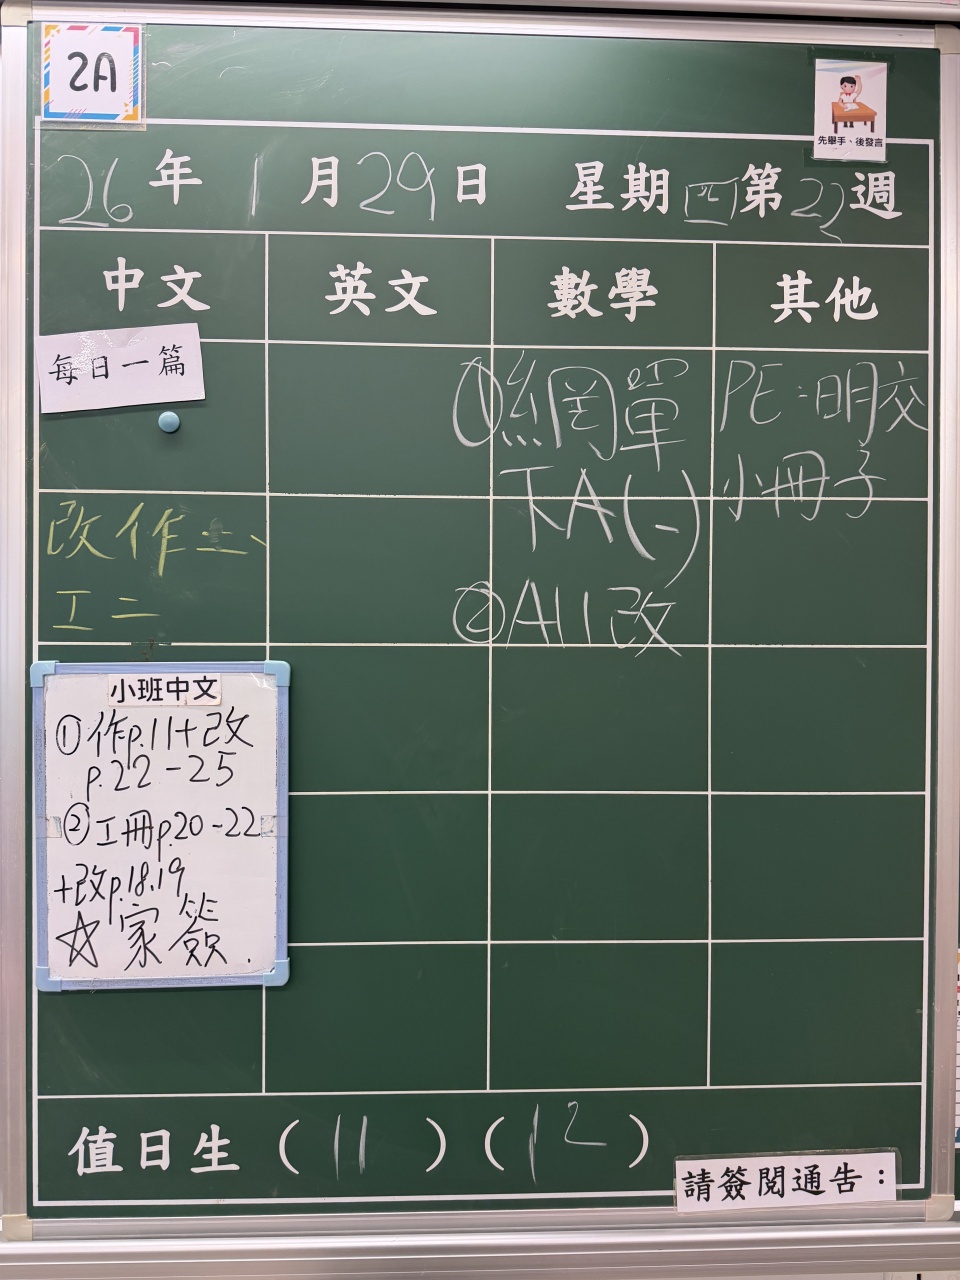 2A
先舉手、後發言
26年1月29日 星期四第22週
中文 英文 數學 其他
每日一篇
①網單
下A(一)
②All改
PE:明交
小冊子
改作
工二
小班中文
①作p.11+改
p.22-25
②工冊p.20-22
+改p.18.19
☆家簽.
值日生(11)(12)
請簽閱通告: